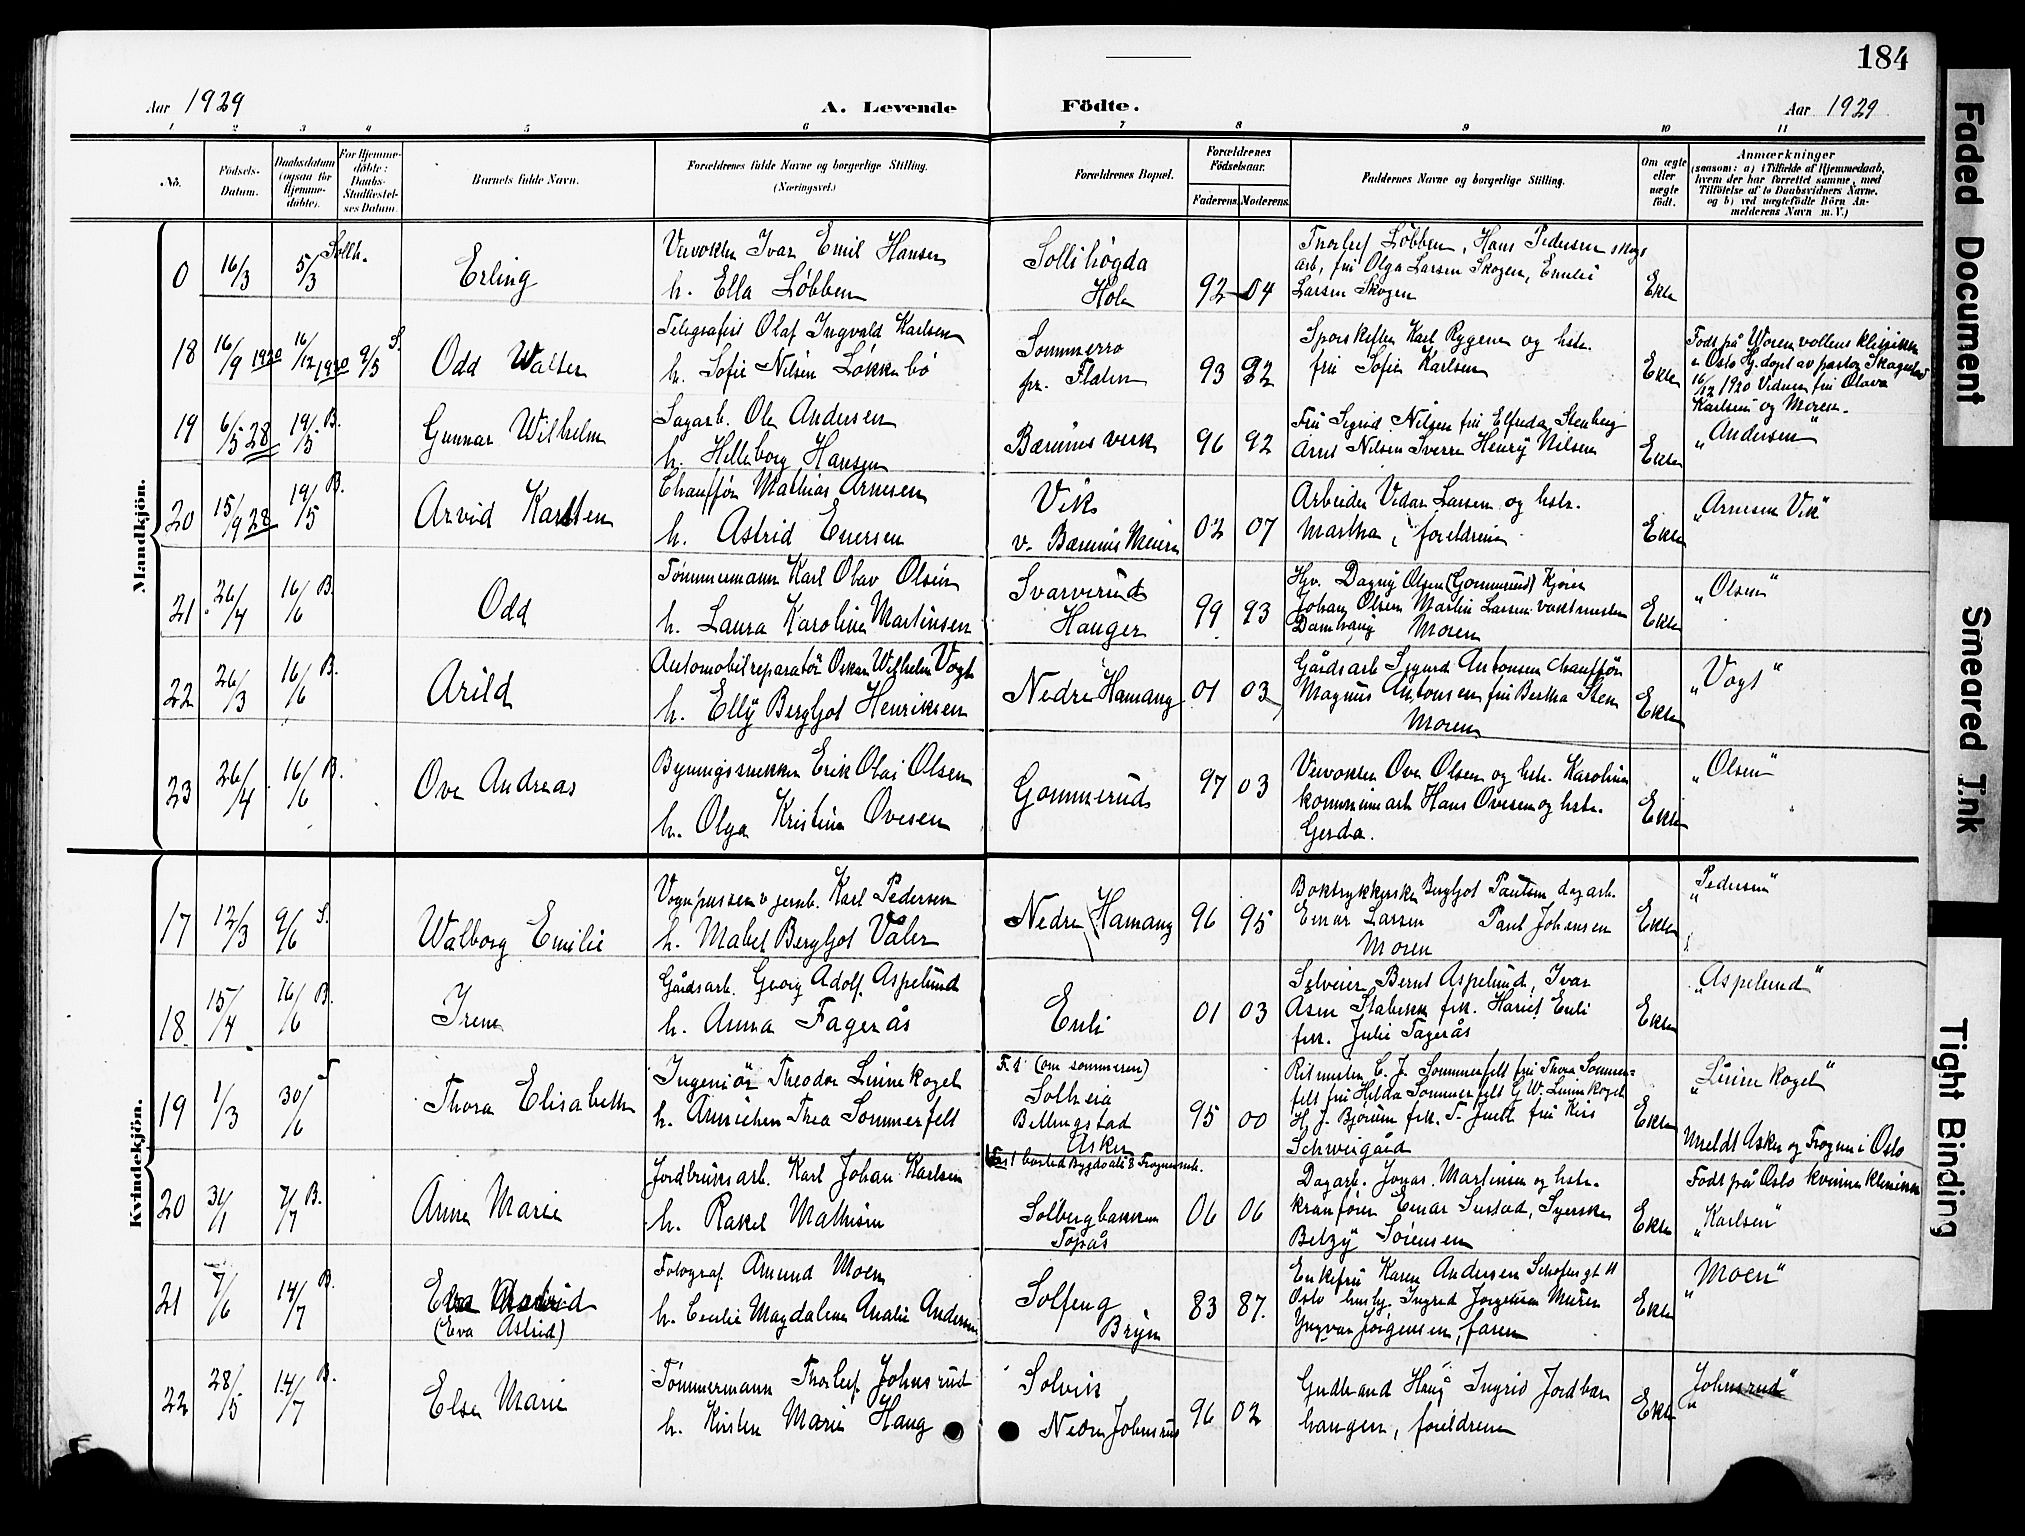 184
Aar 1929
A. Levende
Födte.
Aar 1929
1 2 3 4 5 6 7 8 9 10 11
No.
Födsels-
Datum.
Daabsdatum
(ogsaa for
Hjemme-
döbte).
For Hjemme-
döbte:
Daabs-
Stadfæstel-
ses Datum.
Barnets fulde Navn.
Forældrenes fulde Navne og borgerlige Stilling.
(Næringsvei.)
Forældrenes Bopæl.
Forældrenes
Födselsaar.
Faderens. Moderens.
Faddernes Navne og borgerlige Stilling.
Om ægte
eller
uægte
födt.
Anmærkninger
(saasom: a) i Tilfælde af Hjemmedaab,
hvem der har forrettet samme, med
Tilföielse af to Daabsvidners Navne,
og b) ved uægtefödte Börn An-
melderens Navn m. V.)
Mandkjön.
0 16/3 5/3 Sollh.
Erling
Veivokter Ivar Emil Hansen
h. Ella Løbben
Sollihøgda
Hole
92 04
Thorleif Løbben, Hans Pedersen skogs
arb, fru Olga Larsen Skogen, Emilie
Larsen Skogen
Ekte
18 16/9 1920 16/12 1920 9/5 S.
Odd Walter
Telegrafist Olaf Ingvald Karlsen
h. Sofie Nilsen Løkkebø
Sommerro
pr. Flaten
93 92
Sporskifter Karl Rygene og hstr.
fru Sofie Karlsen
Ekte
Født på Worenvollens klinikk
i Oslo Hj.døpt av pastor Skagestad
16/12 1920 Vidner fru Olava
Karlsen og Moren.
19 6/5 28 19/5 B.
Gunnar Wilhelm
Sagarb. Ole Andersen
h. Helleborg Hansen
Bærums verk
96 92
Fru Sigrid Nilsen fru Elfreda Stenberg
Arne Nilsen Sverre Henry Nilsen
Ekte
"Andersen"
20 15/9 28 19/5 B.
Arvid Karsten
Chauffør Mathias Arnesen
h. Astrid Enersen
Vik
v. Bærums Meieri
02 07
Arbeider Vidar Larsen og hstr.
Martha, foreldrene
Ekte
"Arnesen Vik"
21 26/4 16/6 B.
Odd
Tømmermann Karl Olav Olsen
h. Laura Karoline Martinsen
Svarverud
Hauger
99 93
Hv. Dagny Olsen (Gommerud) Kjører
Johan Olsen Martin Larsen vaktmester
Moren
Ekte
"Olsen"
22 26/3 16/6 B.
Arild
Automobilreparatør Oskar Wilhelm Vogt
h. Elly Bergljot Henriksen
Nedre Hamang
01 03
Gårdsarb Sigurd Antonsen chauffør
Magnus Antonsen fru Bertha Sten
Moren
Ekte
"Vogt"
23 26/4 16/6 B.
Ove Andreas
Bygningssnekker Erik Olai Olsen
h. Olga Kristine Ovesen
Gommerud
97 03
Veivokter Ove Olsen og hstr. Karoline
kommunearb Hans Ovesen og hstr.
Gerda.
Ekte
"Olsen"
Kvindekjön.
17 12/3 9/6 S.
Walborg Emilie
Vognpusser v jernb. Karl Pedersen
h. Mabel Bergljot Våler
Nedre Hamang
96 95
Boktrykkerske Bergljot Paulsen dagarb.
Einar Larsen Paul Johansen
Moren
Ekte
"Pedersen"
18 15/4 16/6 B.
Irene
Gårdsarb. Georg Adolf Aspelund
h. Anna Fagerås
Enli
01 03
Selveier Bernt Aspelund, Ivar
Asen Stabekk frk. Hariet Enli
frk. Julie Fagerås
Ekte
"Aspelund"
19 1/3 30/6
Thora Elisabeth
Ingeniør Theodor Linnekogel
h. Annichen Thea Sommerfelt
F. t (om sommeren)
Solheia
Billingstad
Asker
95 00
Ritmester C. J. Sommerfelt fru Thora Sommer-
felt fru Hilda Sommerfelt G.W. Linnekogel
H. J. Bjørum frk. T. Juell fru Kiss
Schweigård
Ekte
"Linnekogel"
Meldt Asker og Frogner i Oslo
20 31/1 7/7 B.
Anne Marie
Jordbruksarb. Karl Johan Karlsen
h. Rakel Mathisen
Solbergbakken
Topås
06 06
Dagarb. Jonas Martinsen og hstr.
kranfører Einar Sustad, Syerske
Betzy Sørensen
Ekte
Født på Oslo kvinneklinikk
"Karlsen"
21 7/6 14/7 B.
Eva Astrid
(Eva Astrid)
Fotograf Amund Moen
h. Cecilie Magdalene Analie Andersen
Solfeng
Bryn
83 87.
Enkefru Karen Andersen Schofsgt 11
Oslo husby. Ingrid Jørgensen Murer
Yngvar Jørgensen, faren
Ekte
"Moen"
22 28/5 14/7 B.
Else Marie
Tømmermann Thorleif Johnsrud
h. Kirsten Marie Haug
Solvik
Nedre Johnsrud
96 02
Gudbrand Haug Ingrid Jordbær
haugen, foreldrene
Ekte
"Johnsrud"
Faded Document
Smeared Ink
Tight Binding